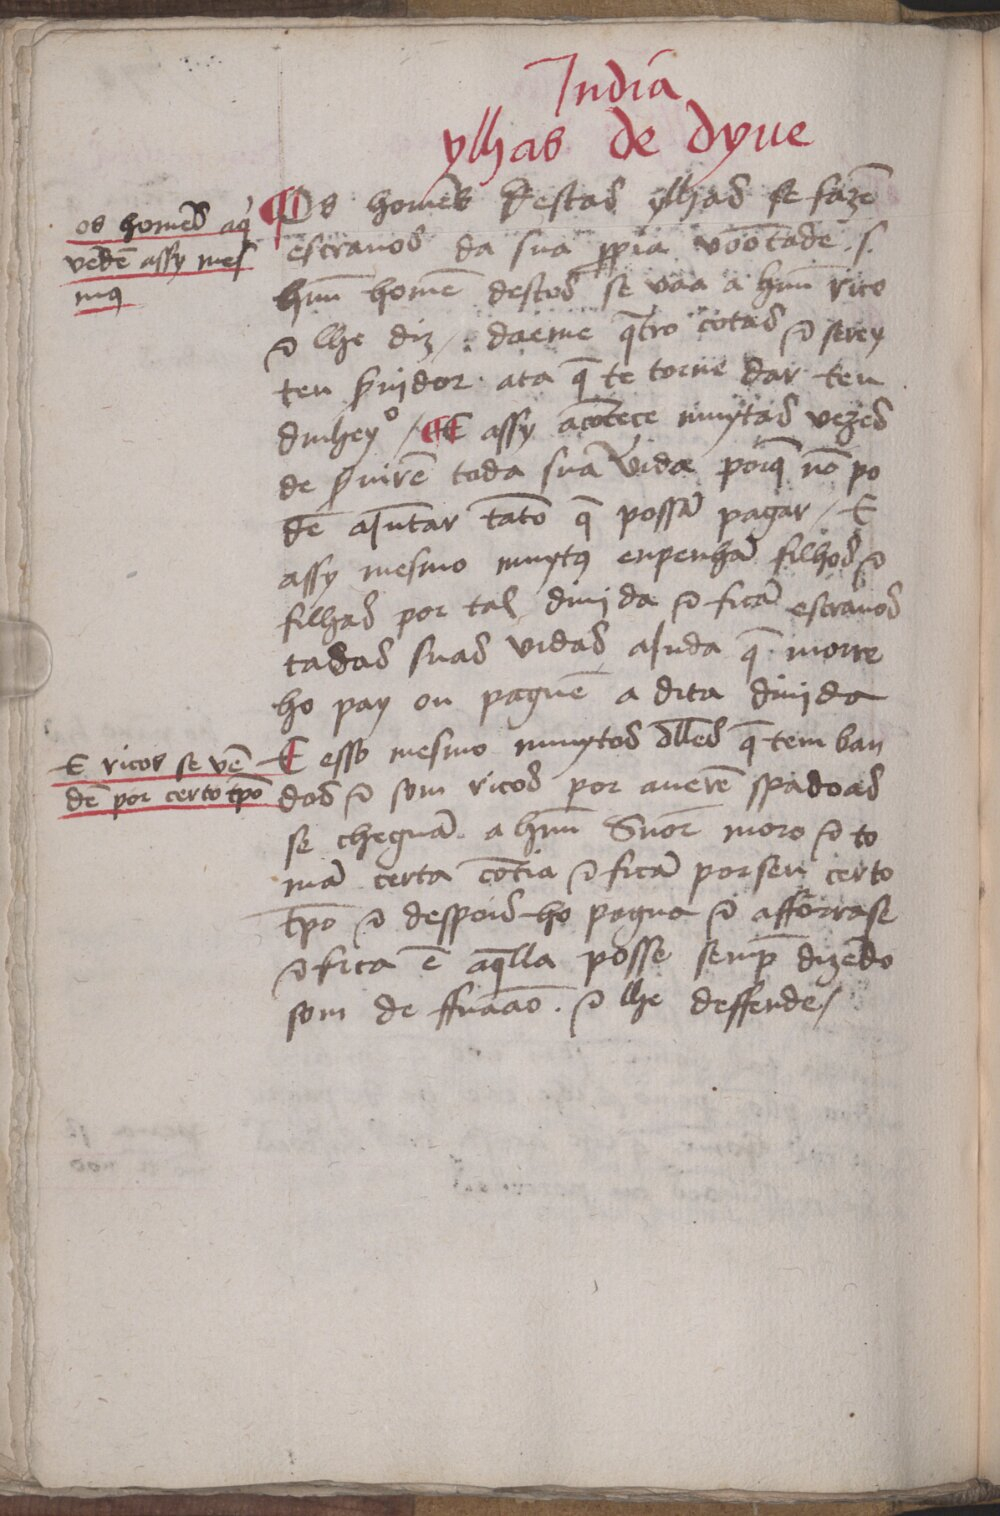 Jndia
ylhas de dyue
os homeēs aq̃
vēdē assy mes
mos
Os homeēs destas ylhas se fazē
escrauos da sua p̱pia voōtade .s.
hũu homē destes se vaa a hũu rico
e lhe diz / daeme q̃tro cotas e serey
teu s̃uidor ata q̃ te torne dar teu
dinheyº / E assy acōtece muytas vezes
de s̃uirē toda sua vida porq̃ nō po
dē aJuntar tāto q̃ possā pagar / E
assy mesmo muytos enpenhā filhos e
filhas por tal diuida e ficā escrauos
todas suas vidas aJnda q̃ morre
ho pay ou paguē a dita diuida
E ricos se vē
dē por certo tp̄o
E esso mesmo muytos delles q̃ tem ban
dos e som ricos por auerē
se cheguā a hũu Snōr moro e to
mā certa cōtia e ficā por seu certo
tp̄o e despois ho pagua e afforrase
e fica ē aq̃lla posse semp̄ dizēdo
som de ffuāao . e lhe deffende /